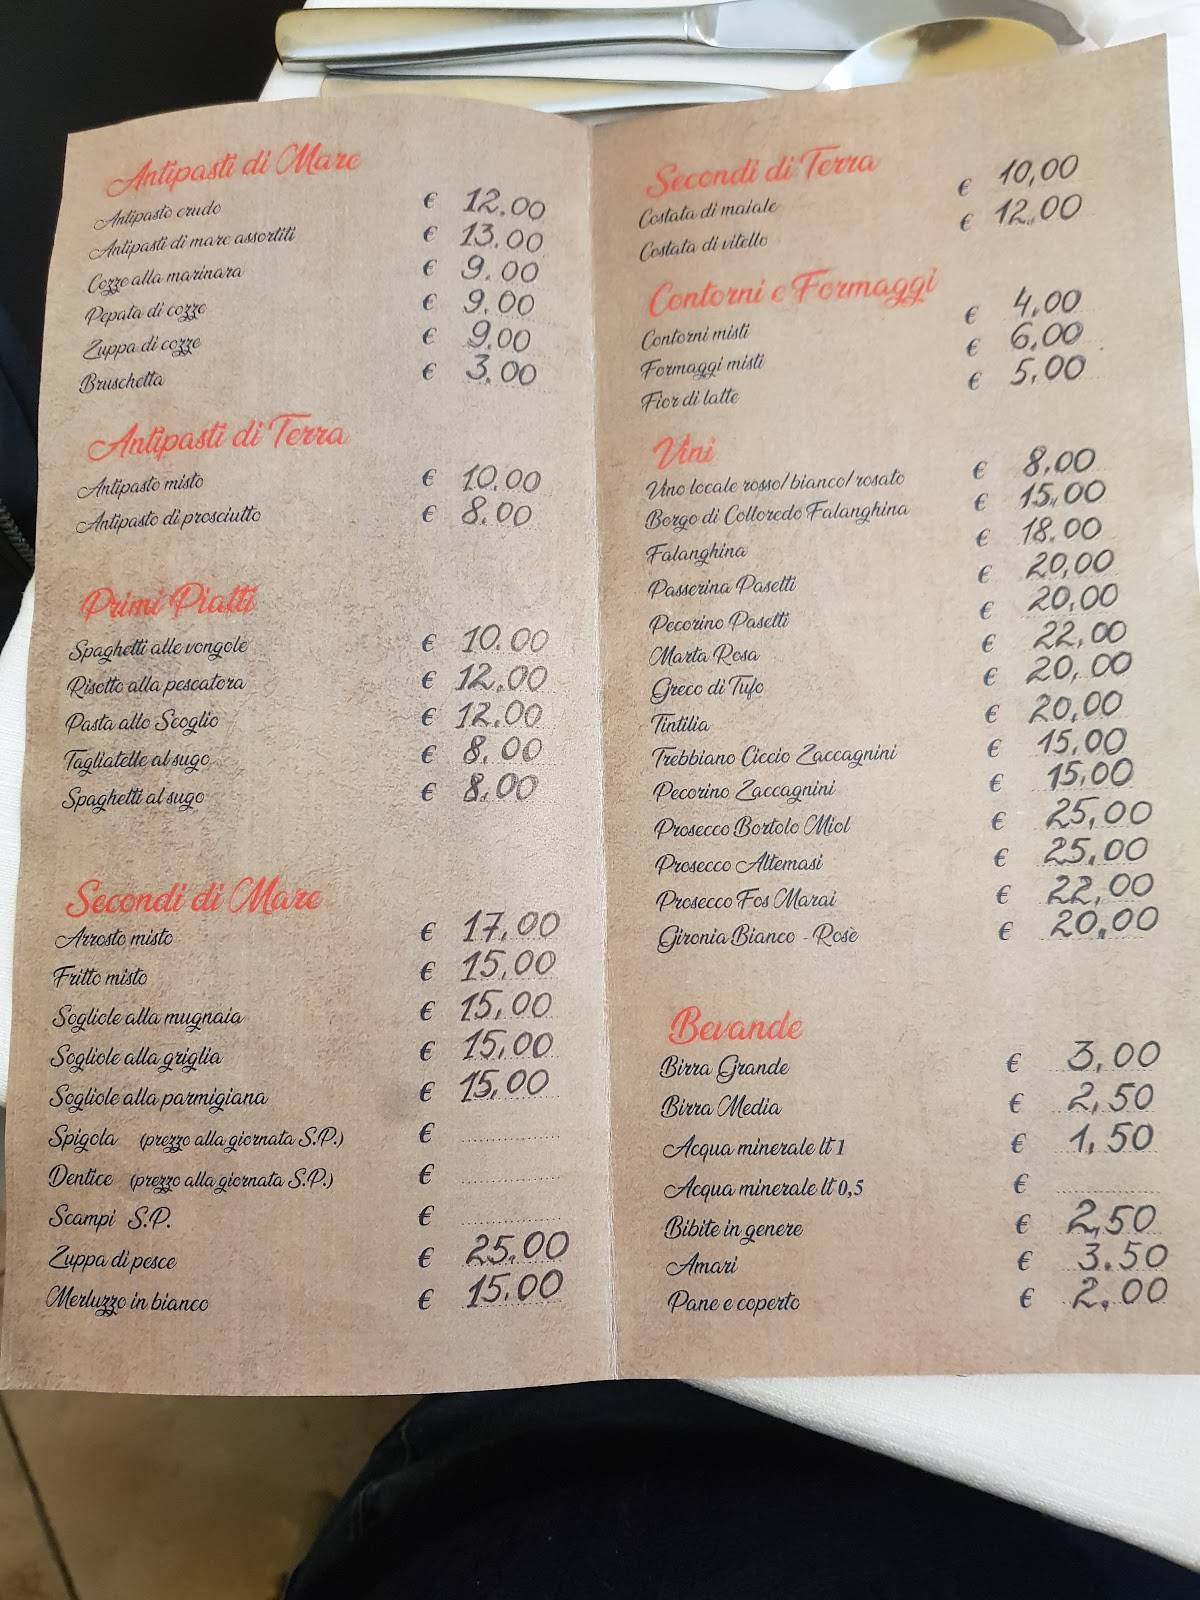 Antipasti di Mare
Antipasto crudo € 12.00
Antipasti di mare assortiti € 13.00
Cozze alla marinara € 9.00
Pepata di cozze € 9.00
Zuppa di cozze € 9.00
Bruschetta € 3.00
Antipasti di Terra
Antipasto misto € 10.00
Antipasto di prosciutto € 8.00
Primi Piatti
Spaghetti alle vongole € 10.00
Risotto alla pescatora € 12.00
Pasta allo Scoglio € 12.00
Tagliatelle al sugo € 8.00
Spaghetti al sugo € 8.00
Secondi di Mare
Arrosto misto € 17,00
Fritto misto € 15,00
Sogliole alla mugnaia € 15,00
Sogliole alla griglia € 15,00
Sogliole alla parmigiana € 15,00
Spigola (prezzo alla giornata S.P.) €
Dentice (prezzo alla giornata S.P.) €
Scampi S.P. €
Zuppa di pesce € 25.00
Merluzzo in bianco € 15.00
Secondi di Terra
Costata di maiale € 10,00
Costata di vitello € 12,00
Contorni e Formaggi
Contorni misti € 4,00
Formaggi misti € 6,00
Fior di latte € 5,00
Vini
Vino locale rosso/bianco/rosato € 8,00
Borgo di Colloredo Falanghina € 15,00
Falanghina € 18.00
Passerina Pasetti € 20,00
Pecorino Pasetti € 20,00
Marta Rosa € 22,00
Greco di Tufo € 20,00
Tintilia € 20,00
Trebbiano Ciccio Zaccagnini € 15,00
Pecorino Zaccagnini € 15,00
Prosecco Bortolo Miol € 25,00
Prosecco Altemasi € 25,00
Prosecco Fos Marai € 22,00
Gironia Bianco - Rosè € 20,00
Bevande
Birra Grande € 3,00
Birra Media € 2,50
Acqua minerale lt 1 € 1,50
Acqua minerale lt 0,5 €
Bibite in genere € 2,50
Amari € 3.50
Pane e coperto € 2.00